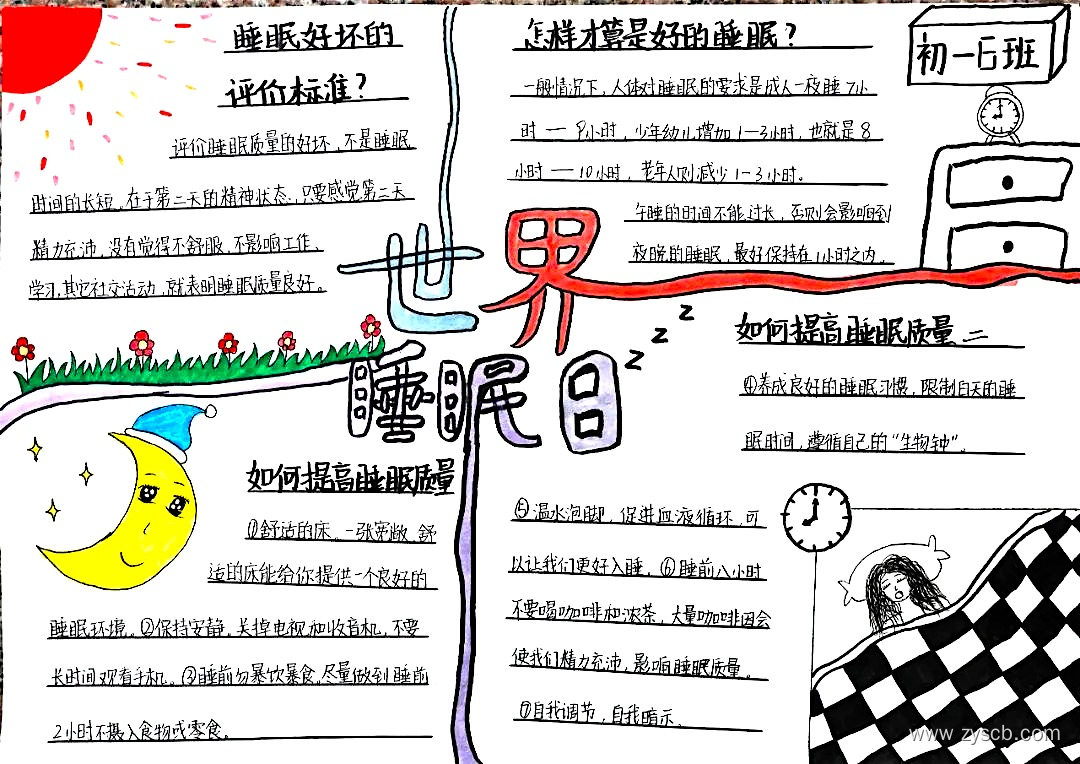 睡眠好坏的
评价标准？
评价睡眠质量的好坏，不是睡眠
时间的长短。在于第二天的精神状态，只要感觉第二天
精力充沛，没有觉得不舒服，不影响工作、
学习，其它社交活动，就表明睡眠质量良好。
怎样才算是好的睡眠？
一般情况下，人体对睡眠的要求是成人一夜睡7小
时 — 9小时，少年幼儿增加1-3小时，也就是8
小时 — 10小时，老年人则减少1-3小时。
午睡的时间不能过长，否则会影响到
夜晚的睡眠，最好保持在1小时之内。
初一6班
世界
睡眠日
z
z
z
如何提高睡眠质量
①舒适的床。一张宽敞、舒
适的床能给你提供一个良好的
睡眠环境。②保持安静。关掉电视和收音机，不要
长时间观看手机。③睡前勿暴饮暴食。尽量做到睡前
2小时不摄入食物或零食。
如何提高睡眠质量 二
④养成良好的睡眠习惯，限制白天的睡
眠时间，遵循自己的“生物钟”。
⑤温水泡脚，促进血液循环，可
以让我们更好入睡。⑥睡前八小时
不要喝咖啡和浓茶，大量咖啡因会
使我们精力充沛，影响睡眠质量。
⑦自我调节，自我暗示。
www.zyscb.com